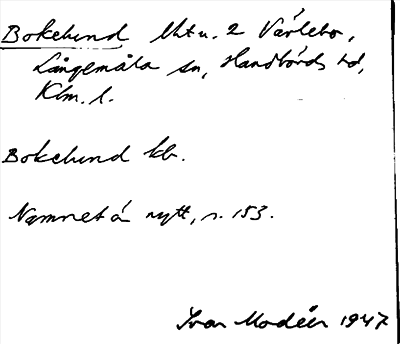 Bokelund lht u. 2 Värlebo,
Långemåla sn, Handbörds hd,
Klm. l.
Bokelund kb.
Namnet är nytt, s. 153.
Ivar Modéer 1947